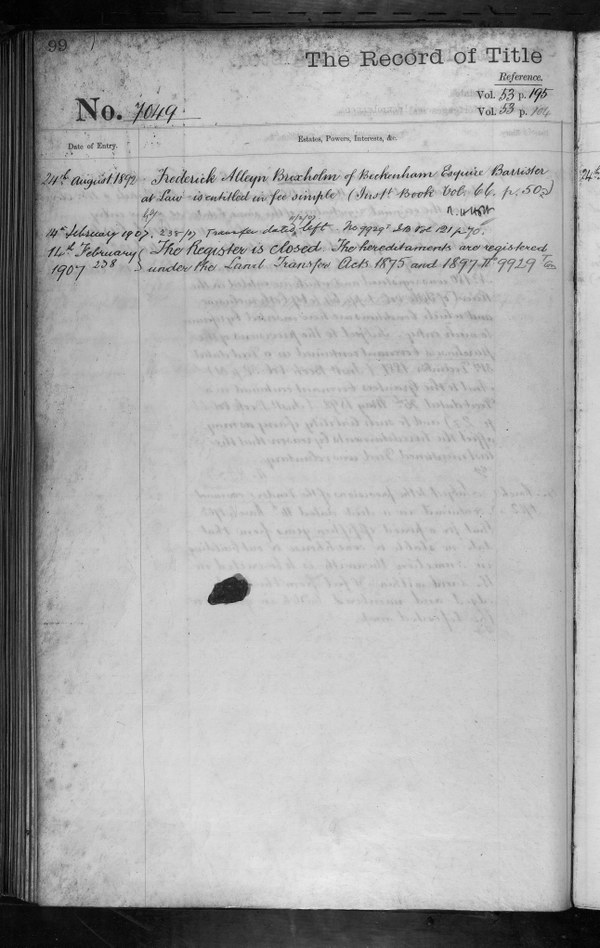 99
The Record of Title
Reference.
Vol. 53 p. 195
No. 7049
Vol. 53 p. 104
Date of Entry.
Estates, Powers, Interests, &c.
24th August 1892
Frederick Alleyn Brixholm of Beckenham Esquire Barrister
at Law is entitled in fee simple (Inst. Book Vol. 66. p. 50.)
14th February 1907. 238/07 Transfer dated left No 9929 I.B Vol 121 p 70.
14th February
The Register is closed The hereditaments are registered
1907 238
under the Land Transfer Acts 1875 and 1897 No 9929
24th